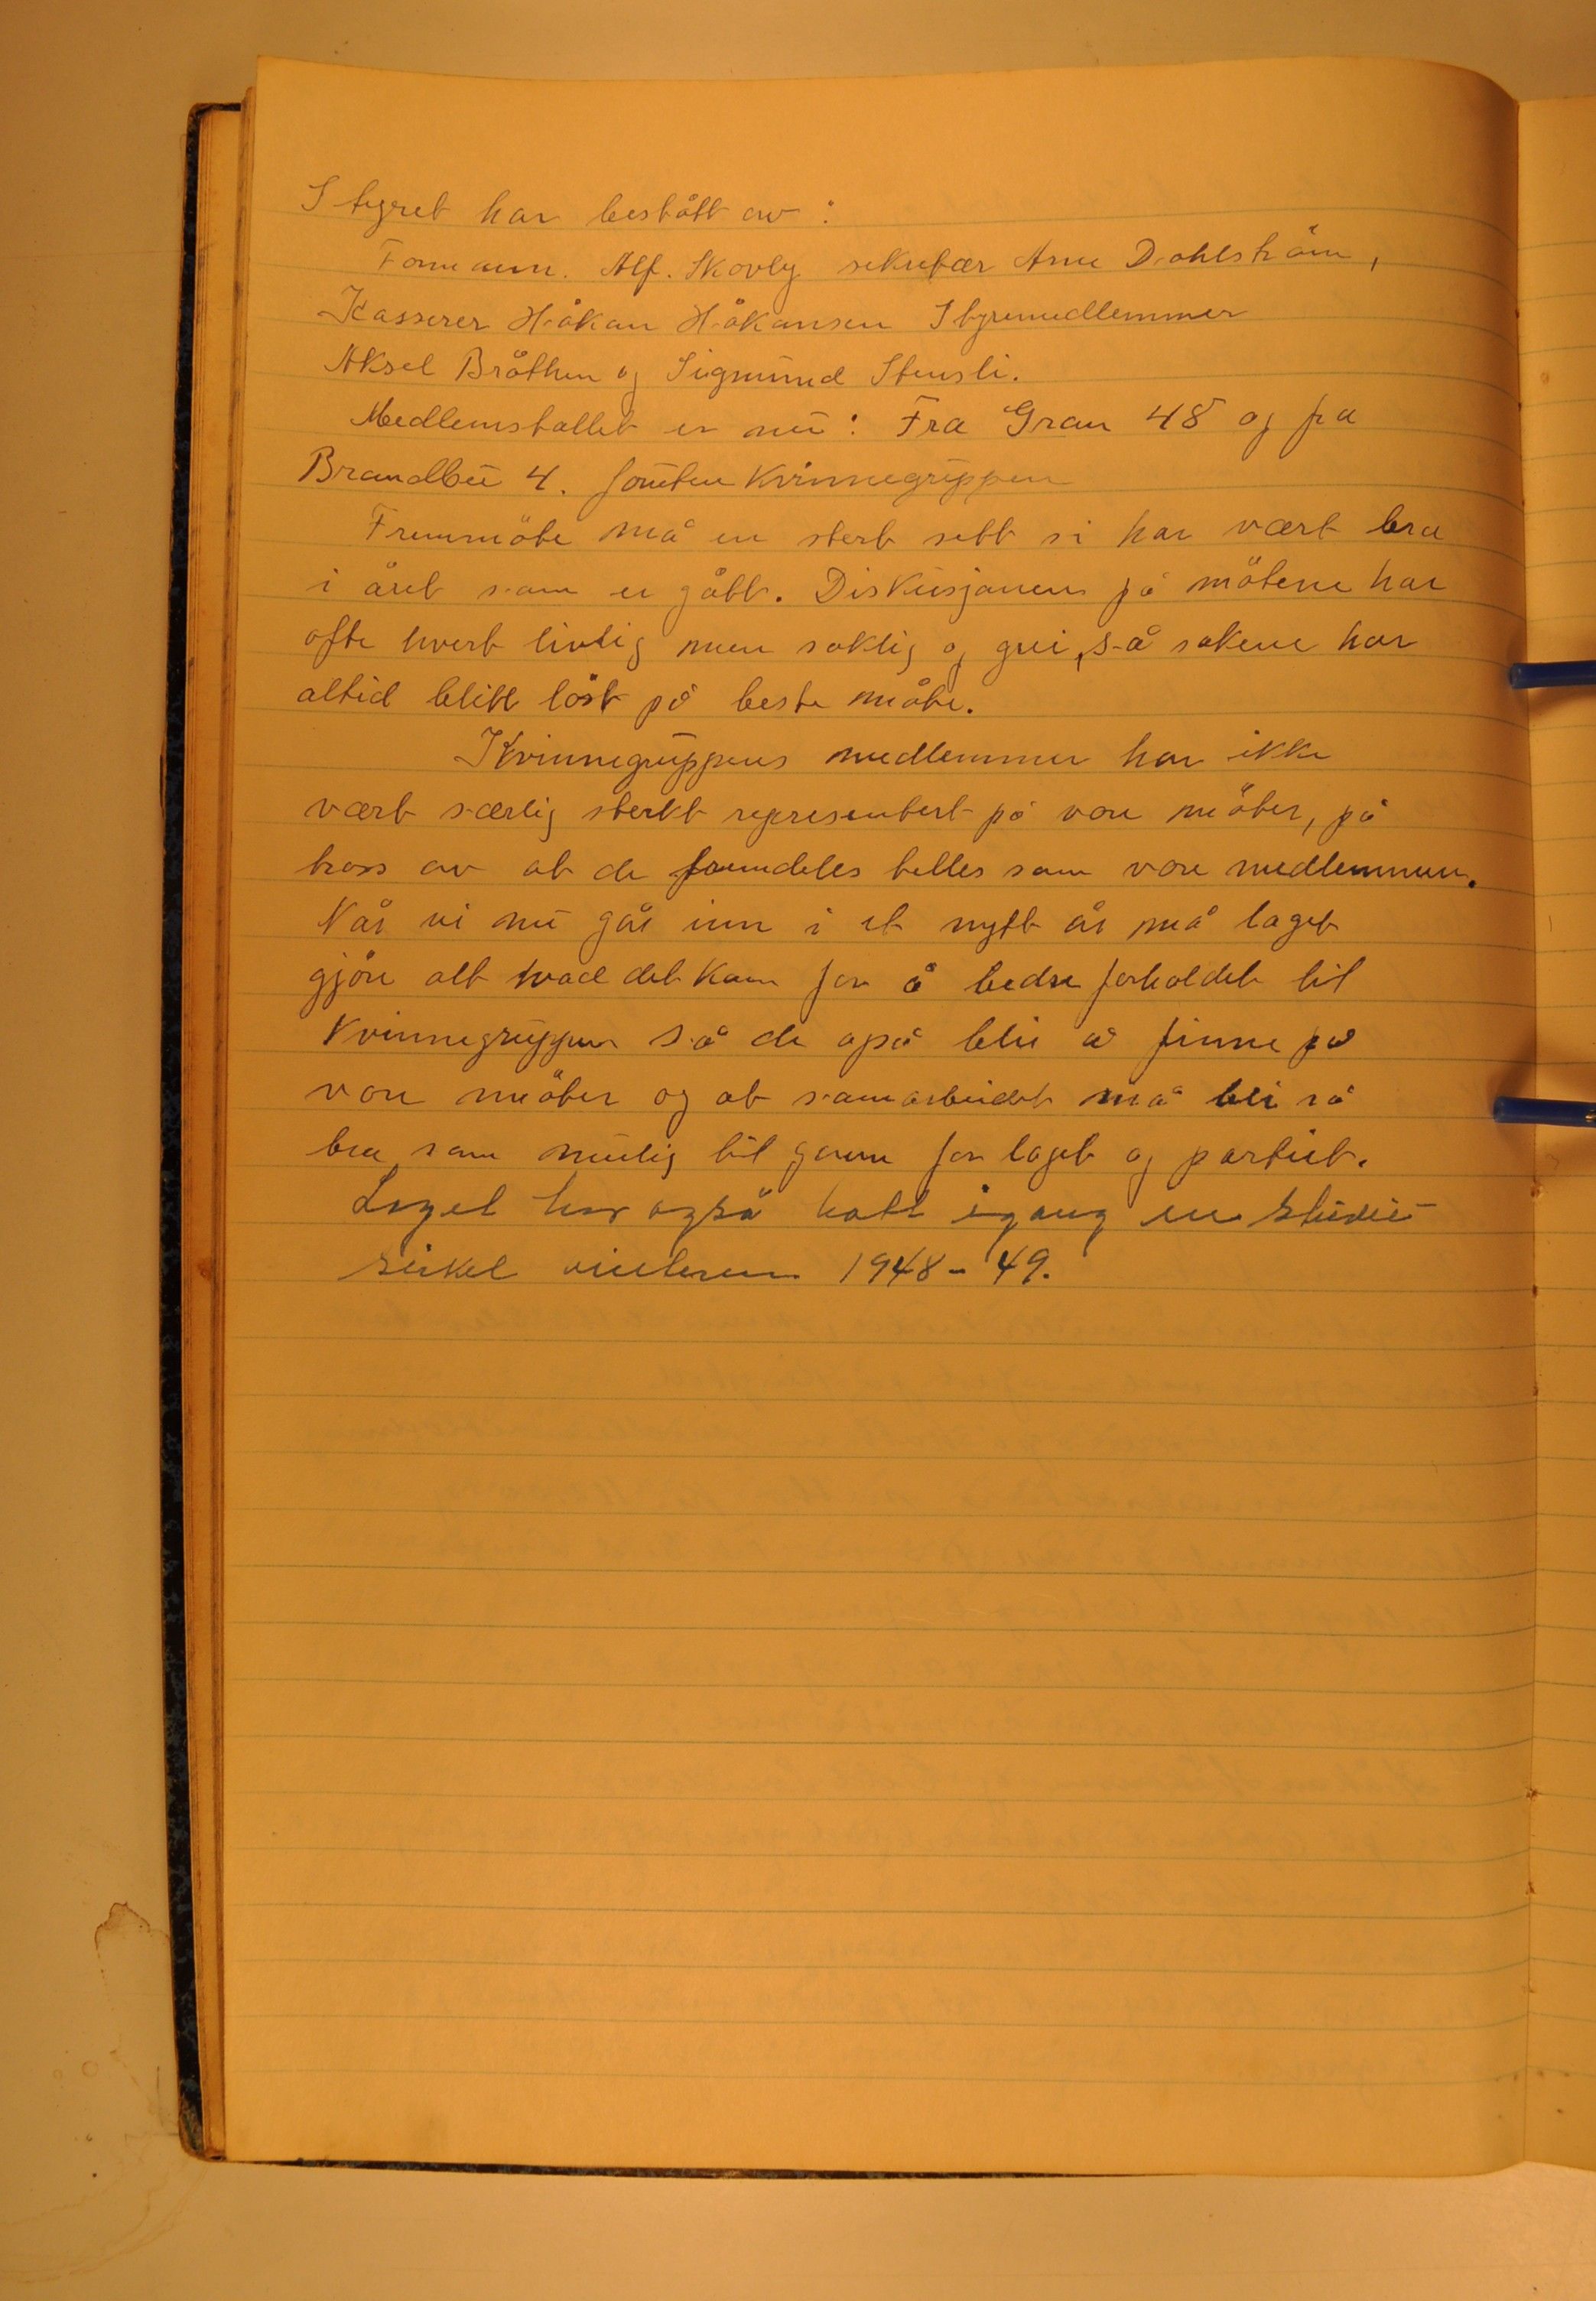 Styret har bestått av:
Formann. Alf. Skovly sekretær Arne Dahlström,
Kasserer Håkan Håkansen Styremedlemmer
Aksel Bråthen og Sigmund Stensli.
Medlemstallet er nu: Fra Gran 48 og fra
Brandbu 4. foruten Kvinnegruppen
Fremmöte må en stort sett si har vært bra
i året som er gått. Diskusjonen på mötene har
ofte hvert livlig men saklig og grei, så sakene har
altid blitt löst på beste måte.
Kvinnegruppens medlemmer har ikke
vært særlig sterkt representert på vore möter, på
tross av at de fremdeles telles som vore medlemmer.
Når vi nu går inn i et nytt år må laget
gjöre alt hvad det kan for å bedre forholdet til
Kvinnegruppen så de også blir å finne på
vore möter og at samarbeidet må bli så
bra som mulig til gavn for laget og partiet.
Laget har også hatt igang en studie
sirkel vinteren 1948-49.